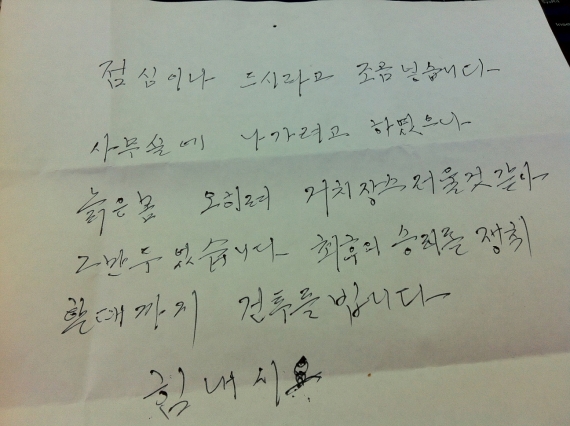 점심이나 드시라고 조금 넣습니다
사무실에 나가려고 하였으나
늙은몸 오히려 거치장스러울것 같아
그만두었습니다 최후의 승리를 쟁취
할때까지 건투를 빕니다
힘내시